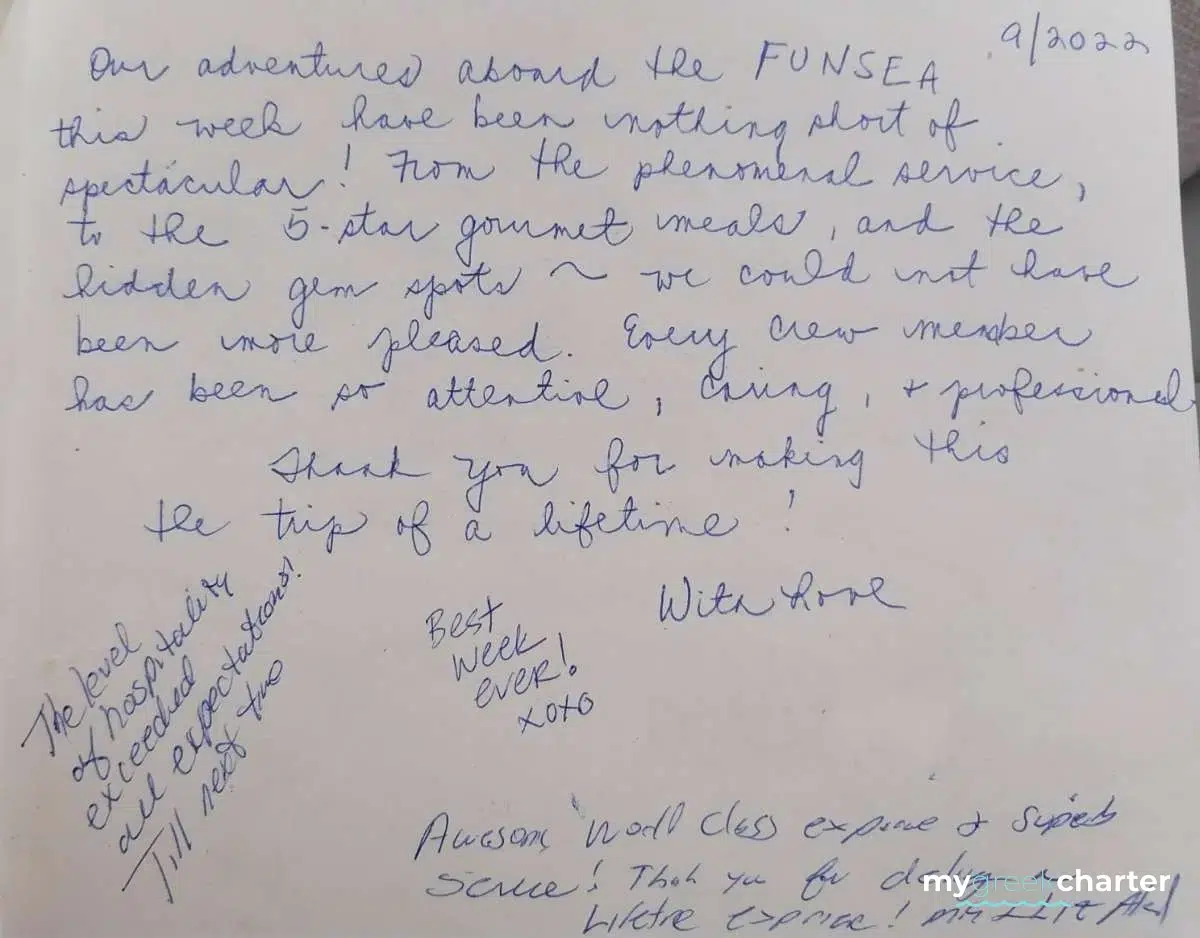 9/2022
Our adventures aboard the FUNSEA
this week have been nothing short of
spectacular! From the phenomenal service,
to the 5-star gourmet meals, and the
hidden gem spots ~ we could not have
been more pleased. Every crew member
has been so attentive, caring, + professional.
Thank you for making this
the trip of a lifetime!
With Love
The level
of hospitality
exceeded
all expectations!
Till next time
Best
week
ever!
xoxo
Awesome World Class experience & superb
Service! Thank you for
Lifetime experience!
mygreekcharter